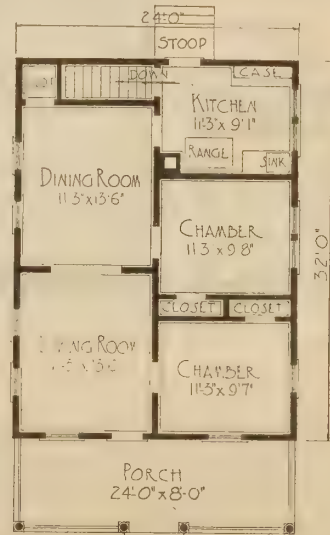 24'-0"
STOOP
DOWN
CASE
KITCHEN
11'-3" x 9'-1"
RANGE
SINK
DINING ROOM
11'-3" x 13'-6"
CHAMBER
11'-3 x 9'-8"
32'-0"
CLOSET
CLOSET
ROOM
CHAMBER
11'-3" x 9'-7"
PORCH
24'-0" x 8'-0"